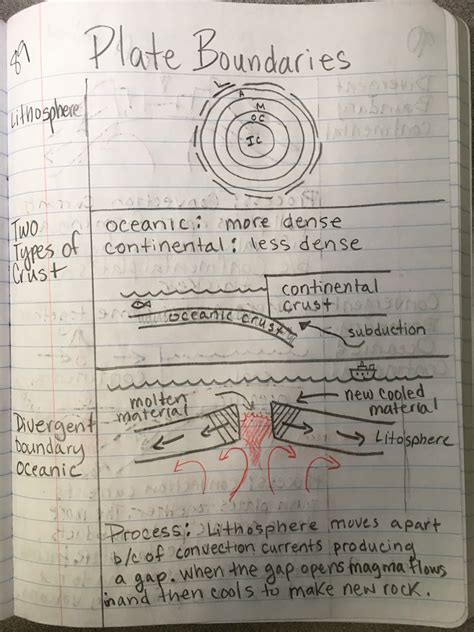 89
Plate Boundaries
Lithosphere
L
A
M
OC
IC
Two
Types of
Crust
oceanic: more dense
continental: less dense
continental
crust
oceanic crust
subduction
molten
material
new cooled
material
Divergent
boundary
oceanic
Litosphere
Process: Lithosphere moves apart
b/c of convection currents producing
a gap. When the gap opens magma flows
in and then cools to make new rock.